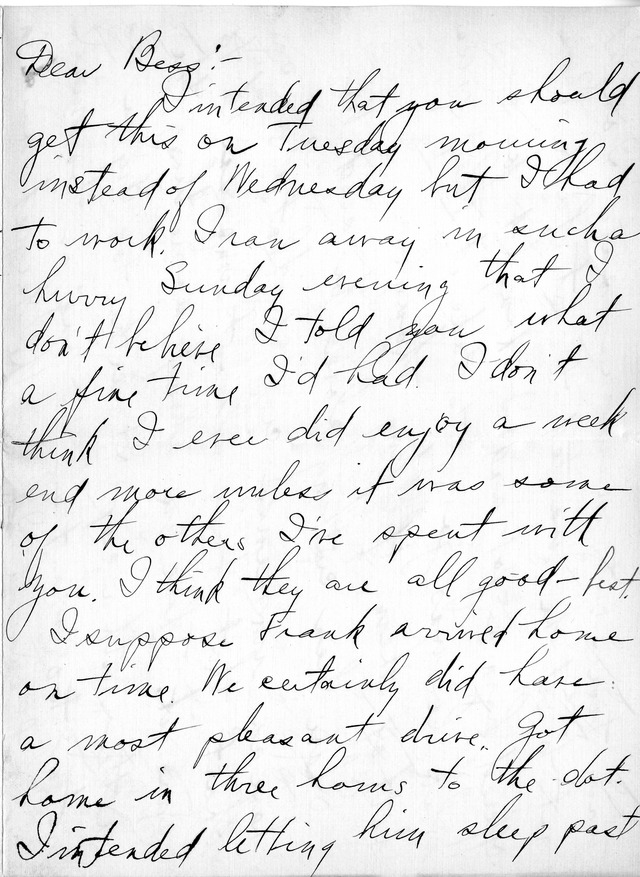 Dear Bess:-
I intended that you should
get this on Tuesday morning
instead of Wednesday but I had
to work. I ran away in such a
hurry Sunday evening that I
don't believe I told you what
a fine time I'd had. I don't
think I ever did enjoy a week
end more unless it was some
of the others I've spent with
you. I think they are all good - best.
I suppose Frank arrived home
on time. We certainly did have
a most pleasant drive. Got
home in three hours to the dot.
I intended letting him sleep past